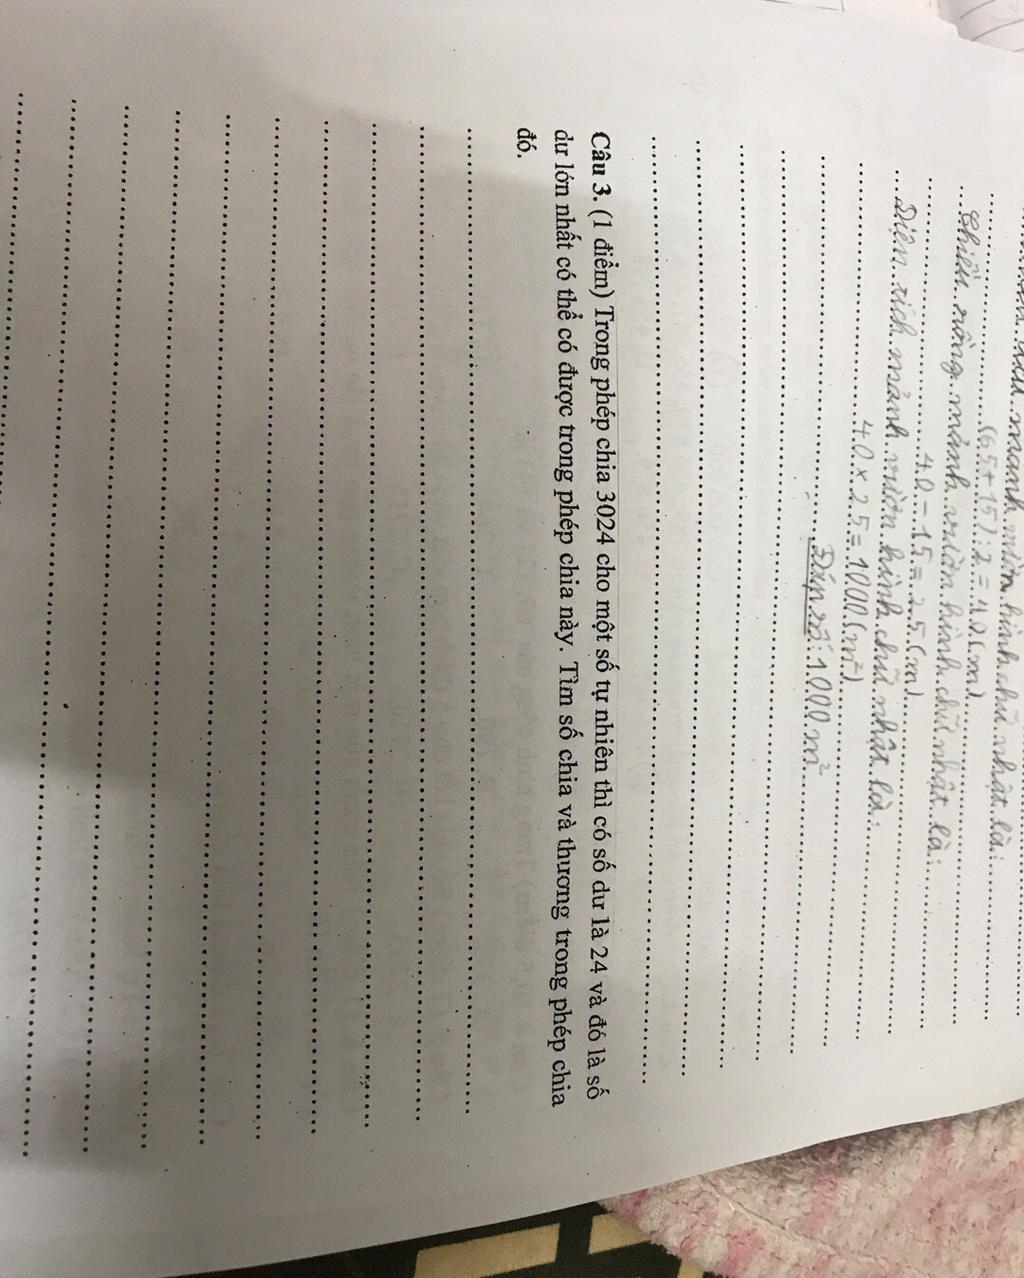 mảnh vườn hình chữ nhật là:
(65+15):2=40(m)
Chiều rộng mảnh vườn hình chữ nhật là:
40-15=25(m)
Diện tích mảnh vườn hình chữ nhật là:
40×25=1000(m²)
Đáp số:1000m²
Câu 3. (1 điểm) Trong phép chia 3024 cho một số tự nhiên thì có số dư là 24 và đó là số
dư lớn nhất có thể có được trong phép chia này. Tìm số chia và thương trong phép chia
đó.